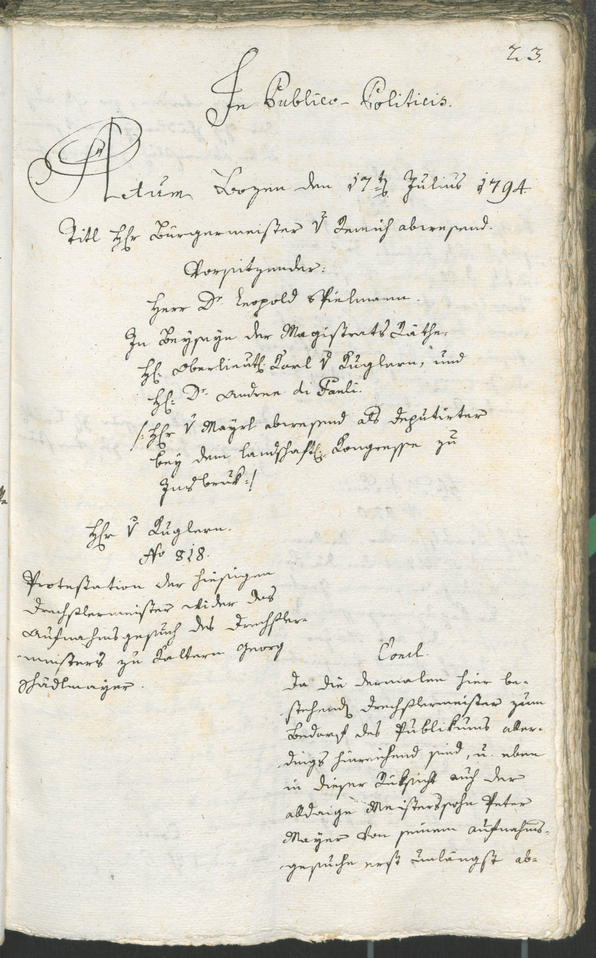 23.
In Publico-Politicis.
Actum Bozen den 17ten Julius 1794
Titl Hr Bürgermeister v abwesend.
Vorsitzender:
Herr Dr Leopold Spielmann.
In Beyseyn der Magistrats Räthe
H. Oberlieut. Karl v Kuglern, und
H. Dr. Andree di Pauli.
/: Hr v Mayrl abwesend als deputirter
bey dem landschaftl. Kongresse zu
Insbruk :/
Hr v Kuglern.
No 818.
Protestation der hiesigen
Drechslermeister wider das
Aufnahmsgesuch des Drechsler-
meisters zu Kaltern Georg
Schädlmayer.
Concl.
Da die dermalen hier be-
stehende Drechslermeister zum
Bedarf des Publikums aller-
dings hinreichend sind, u. eben
in dieser Rüksicht auch der
alldaige Meisterssohn Peter
Mayer von seinem Aufnahms-
gesuche erst unlängst ab-